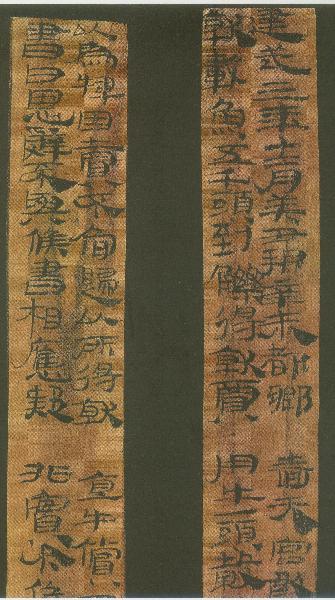 建武三年十二月癸丑朔辛未都鄉嗇夫宮敢
就載魚五千頭到觻得就賈用牛一頭穀
以為因賣不肯歸以所得就直牛償
書曰恩辭不與候書相應疑非實今候